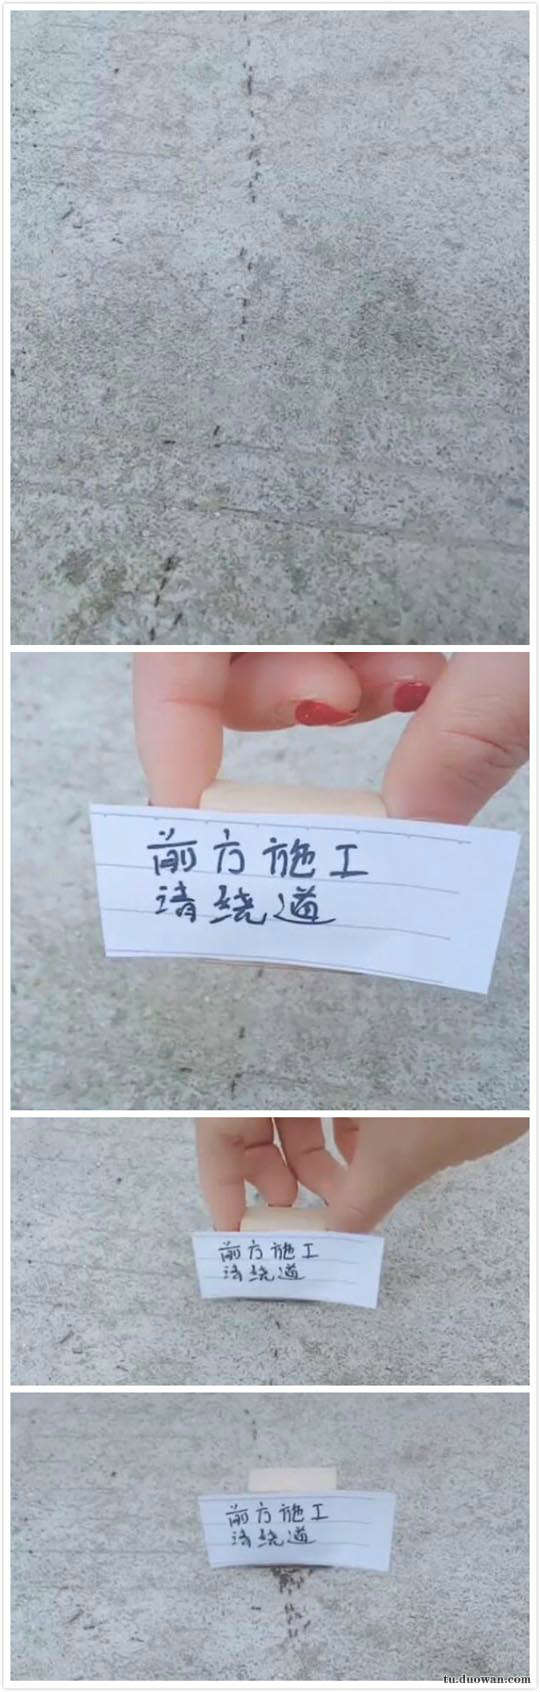 前方施工
请绕道
前方施工
请绕道
前方施工
请绕道
tu.duowan.com